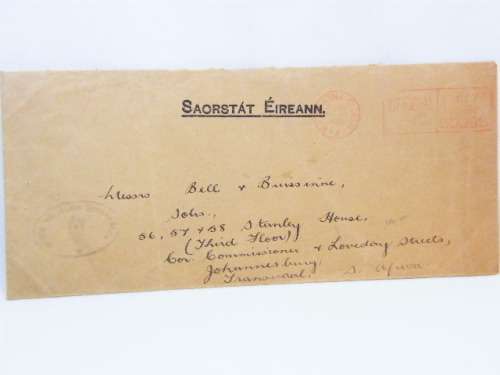 SAORSTÁT ÉIREANN.
Messrs Bell &
Sols.,
56, 57 & 58 Stanley House,
(Third Floor)
Cor. Commissioner & Loveday Streets,
Johannesburg,
Transvaal, S. Africa